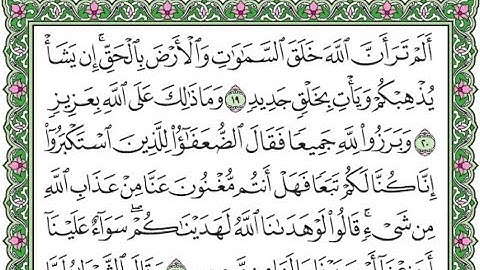 أَلَمْ تَرَ أَنَّ ٱللَّهَ خَلَقَ ٱلسَّمَٰوَٰتِ وَٱلْأَرْضَ بِٱلْحَقِّ ۚ إِن يَشَأْ
يُذْهِبْكُمْ وَيَأْتِ بِخَلْقٍ جَدِيدٍ ١٩ وَمَا ذَٰلِكَ عَلَى ٱللَّهِ بِعَزِيزٍ
٢٠ وَبَرَزُوا۟ لِلَّهِ جَمِيعًا فَقَالَ ٱلضُّعَفَٰٓؤُا۟ لِلَّذِينَ ٱسْتَكْبَرُوٓا۟
إِنَّا كُنَّا لَكُمْ تَبَعًا فَهَلْ أَنتُم مُّغْنُونَ عَنَّا مِنْ عَذَابِ ٱللَّهِ
مِن شَىْءٍ ۚ قَالُوا۟ لَوْ هَدَىٰنَا ٱللَّهُ لَهَدَيْنَٰكُمْ ۖ سَوَآءٌ عَلَيْنَآ